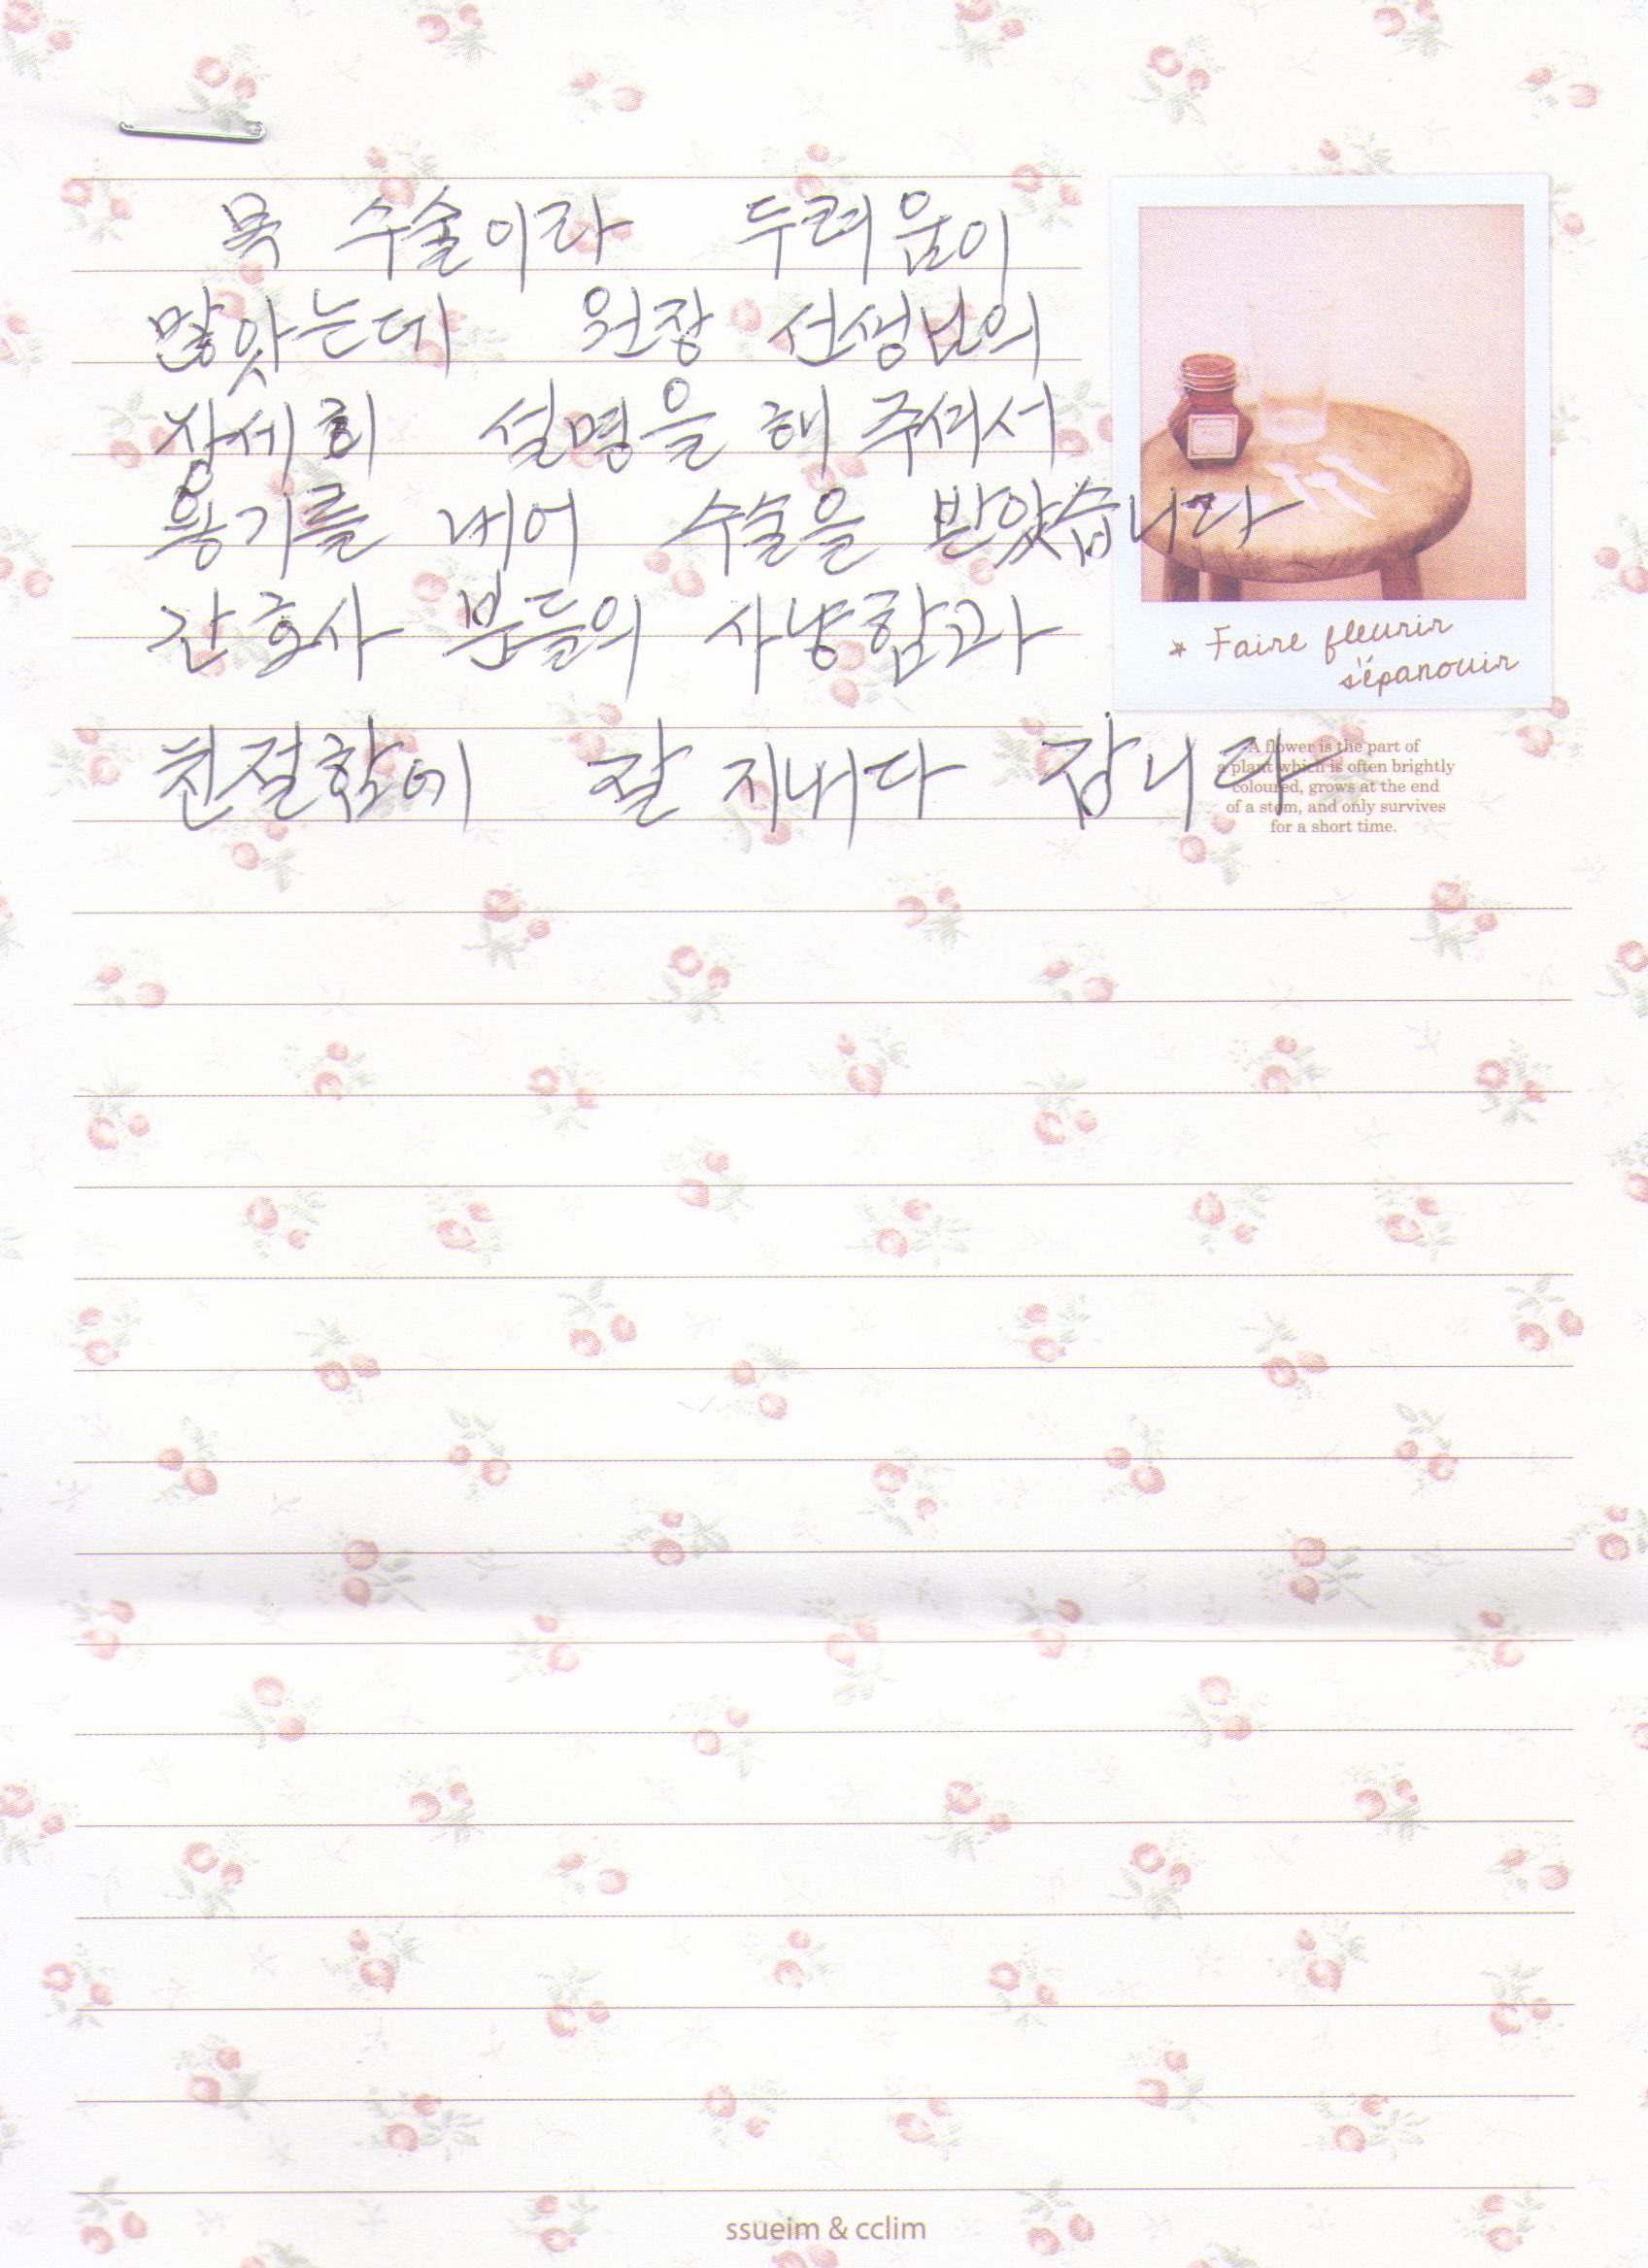 목 수술이라 두려움이
많앗는데 원장 선생님의
상세희 설명을 해 주셔서
용기를 내어 수술을 받았습니다
간호사 분들의 사냥함과
친절함에 잘 지내다 갑니다
* Faire fleurir
s'épanouir
A flower is the part of
a plant which is often brightly
coloured, grows at the end
of a stem, and only survives
for a short time.
ssueim & cclim